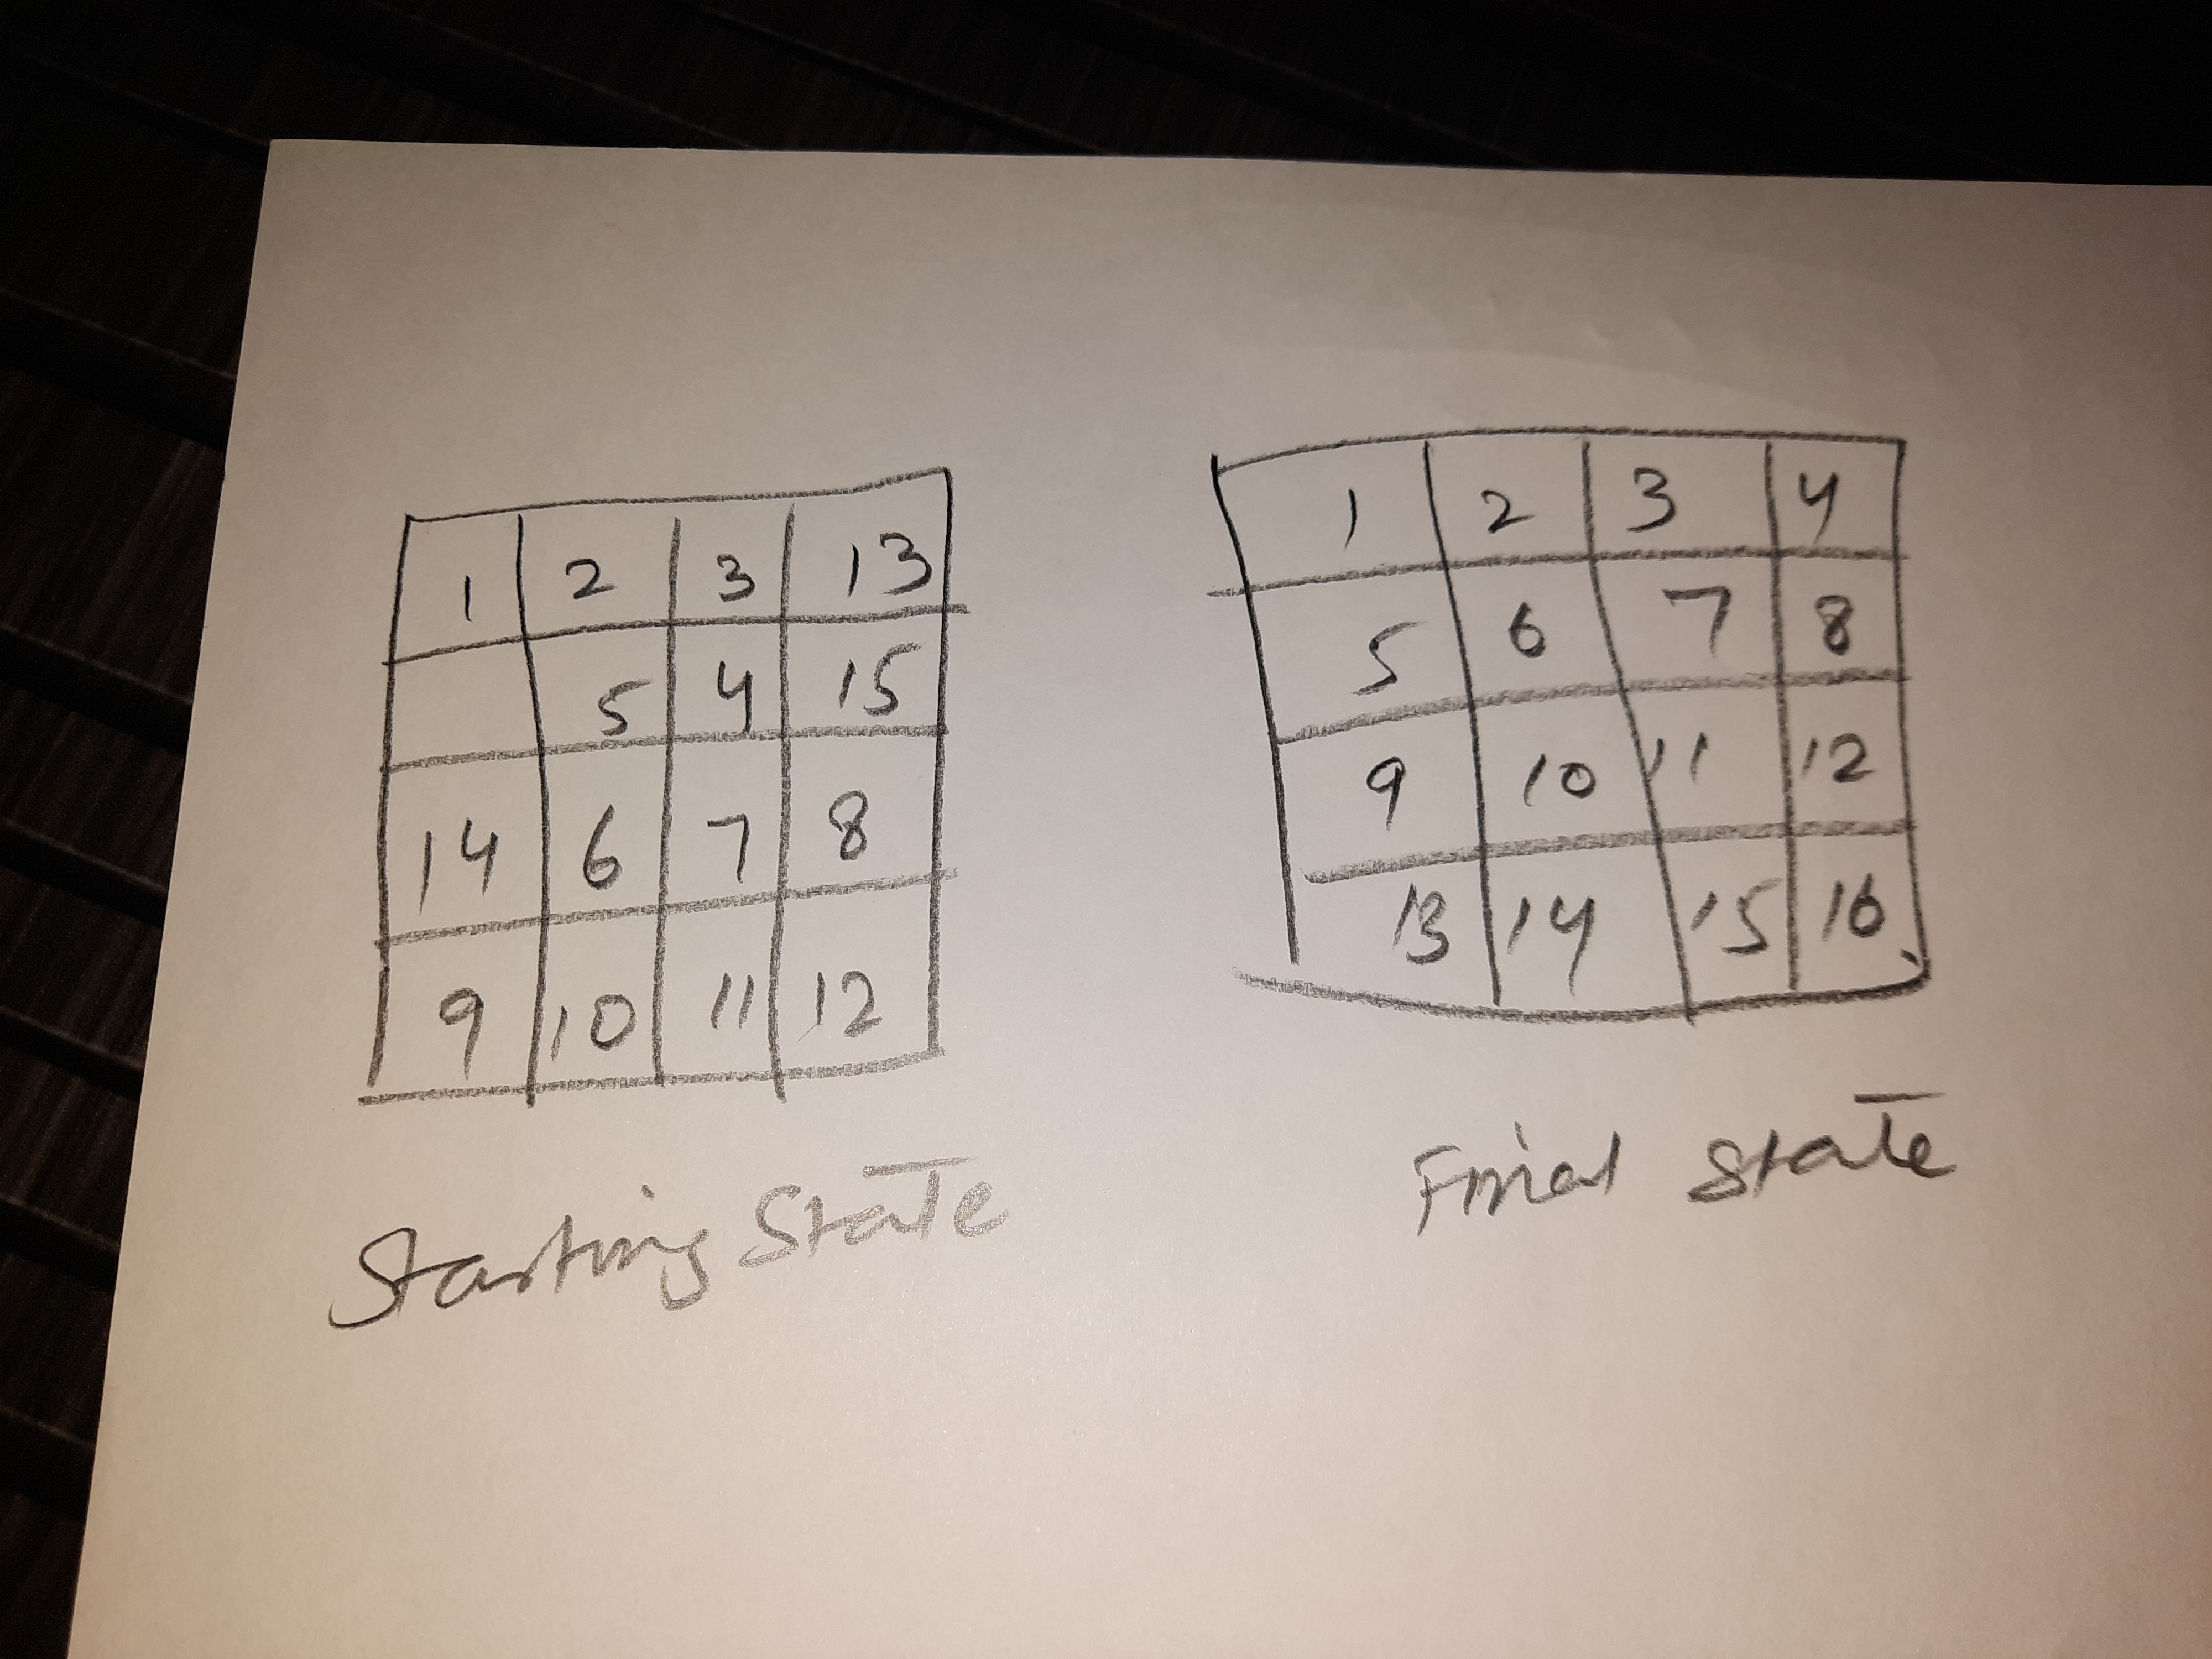 1 2 3 13
5 4 15
14 6 7 8
9 10 11 12
Starting State
1 2 3 4
5 6 7 8
9 10 11 12
13 14 15 16
Final State